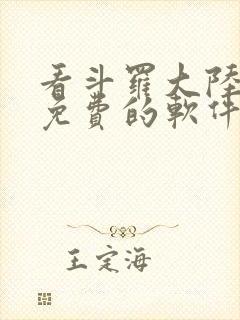 看斗羅大陸
免費的軟件
王定海